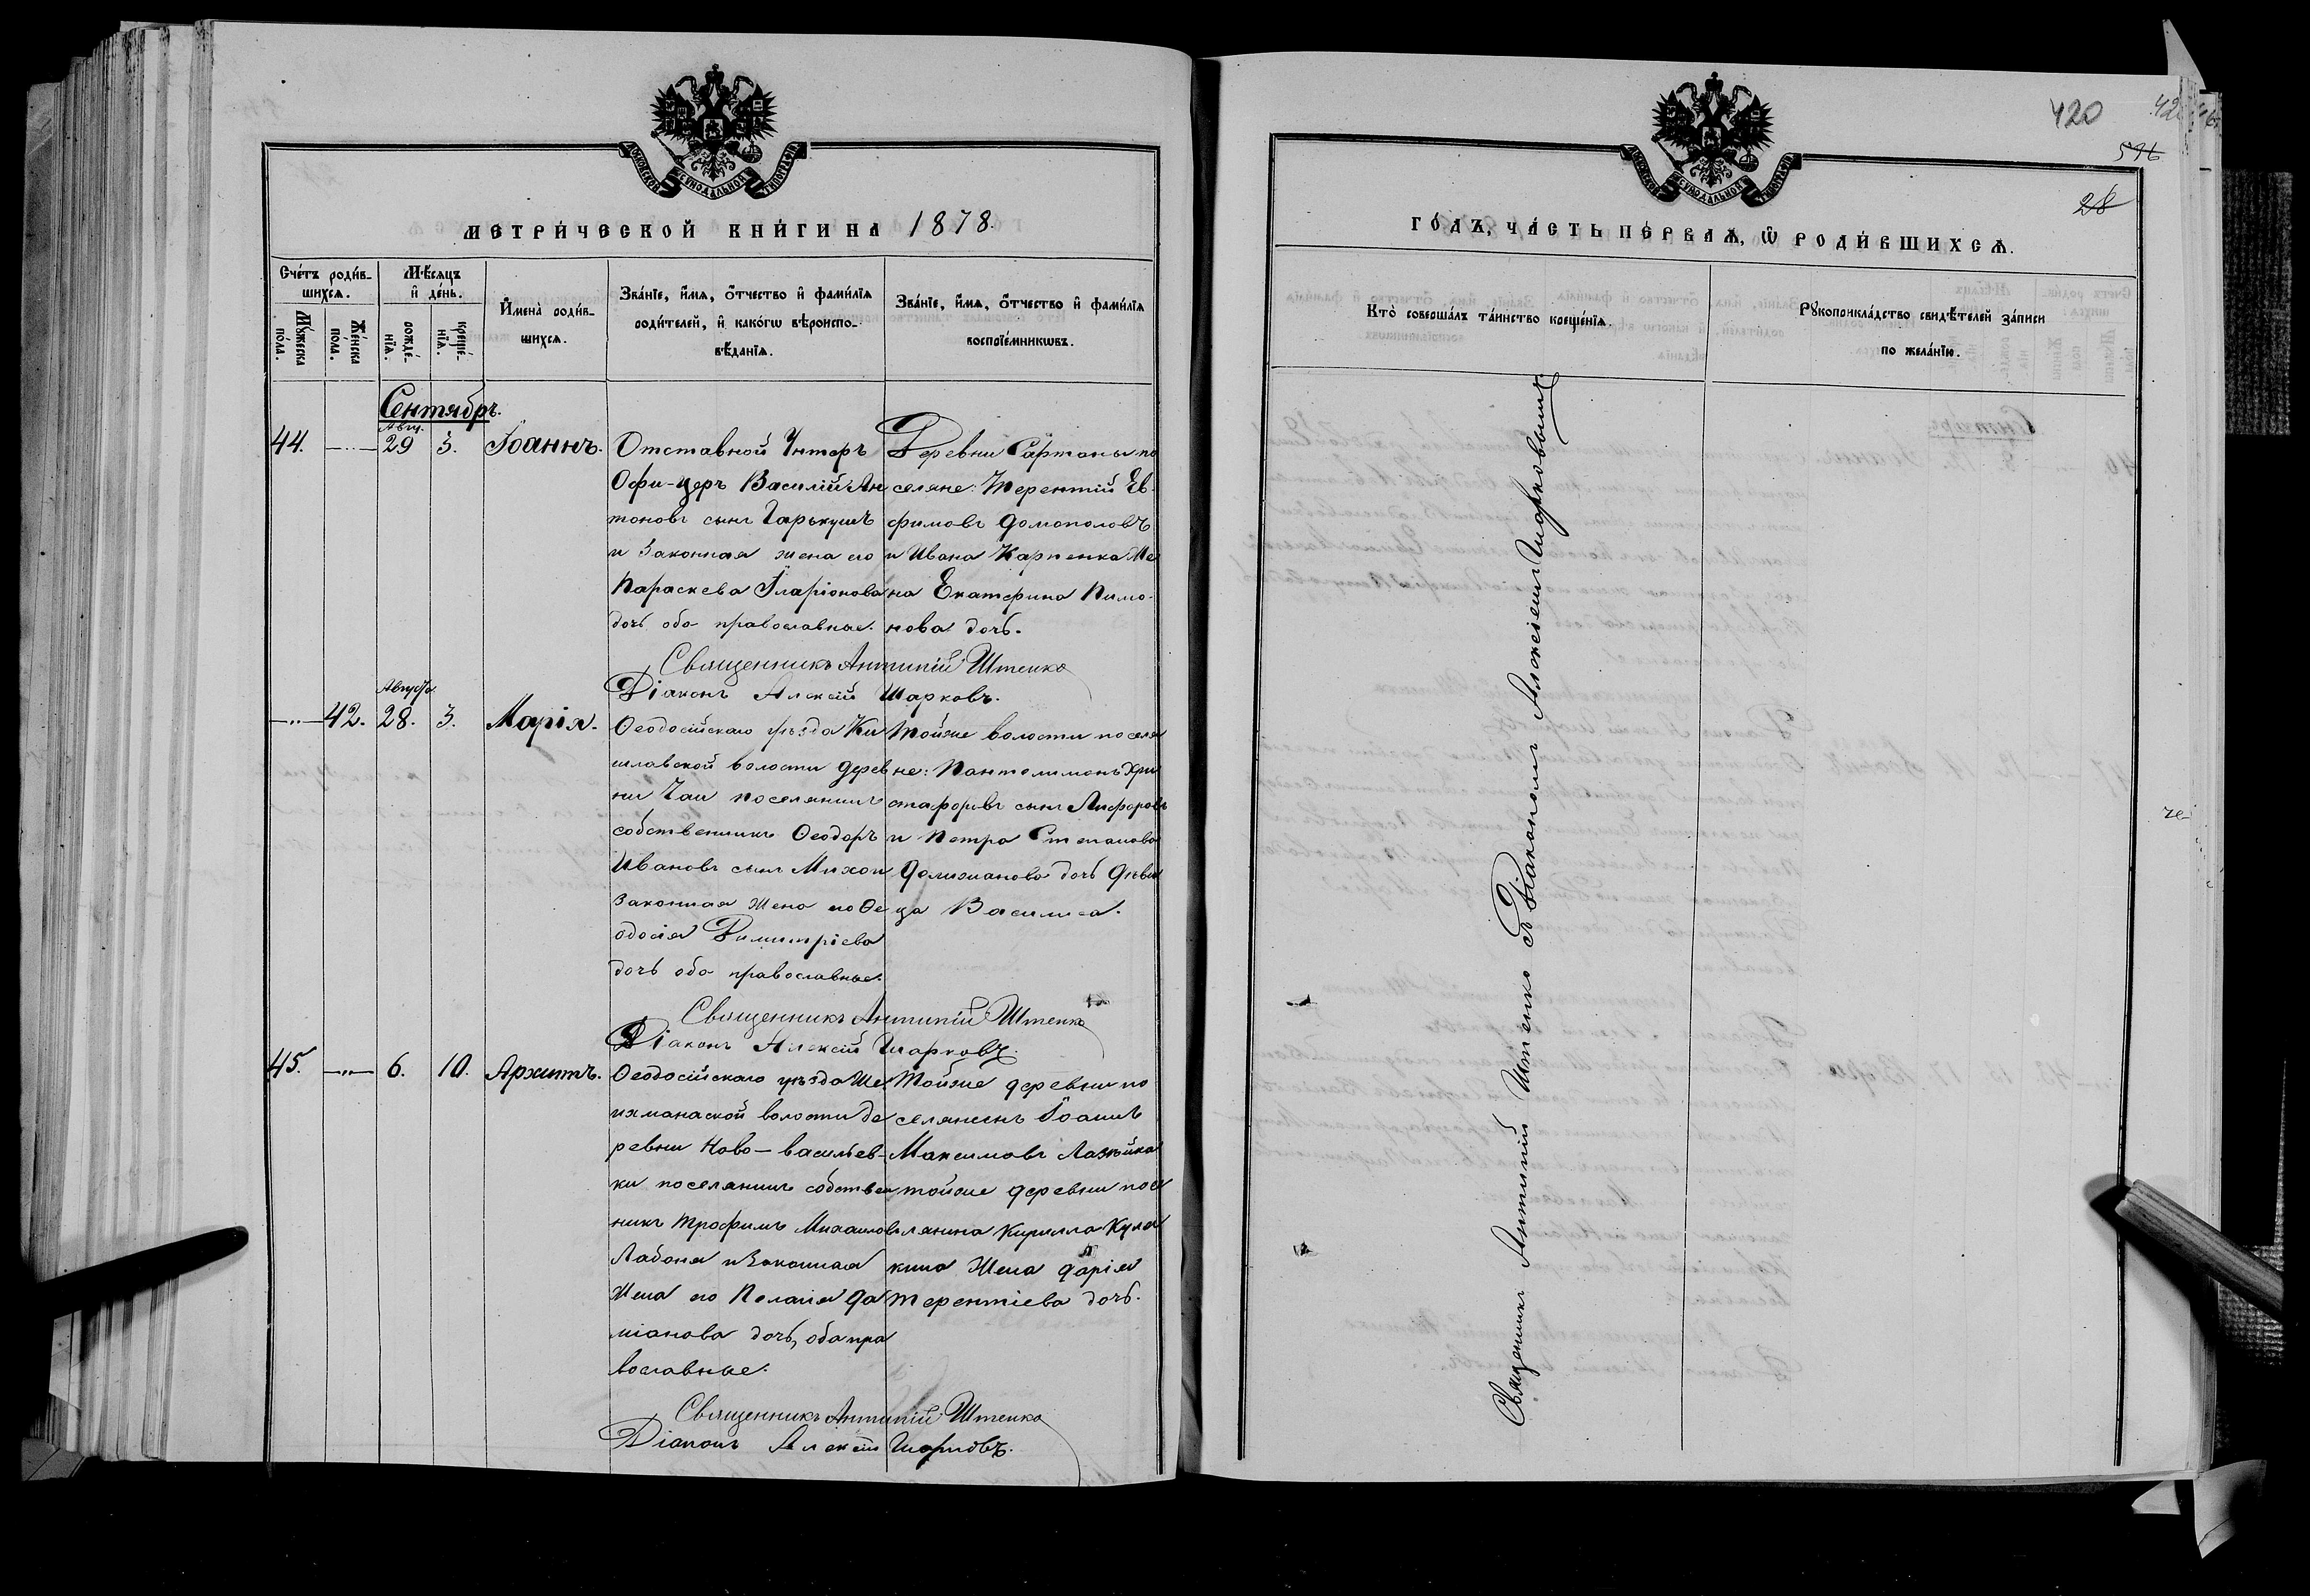 МОСКОВСКОЙ СѴНОДАЛЬНОЙ ТИПОГРАФІИ
МЕТРИ́ЧЕСКОЙ КНИ́ГИ НА 1878.
Сче́тъ роди́в-
шихсѧ.
Мѣ́сѧцъ
и҆ де́нь.
Мꙋ́жеска
по́ла.
Же́нска
по́ла.
рожде́-
нїѧ.
креще́-
нїѧ.
И҆мена̀ роди́в-
шихсѧ.
Зва́нїе, и҆́мѧ, ѻ҆́тчество и҆ фами́лїѧ
роди́телей, и҆ како́гѡ вѣроиспо-
вѣ́данїѧ.
Зва́нїе, и҆́мѧ, ѻ҆́тчество и҆ фами́лїѧ
воспрїе́мникѡвъ.
Сентябрь.
44.
Авг.
29
3.
Іоаннъ.
Отставной Унтеръ
Офи-церъ Василій Ан
тоновъ сынъ Гарькушъ
и законная жена его
Параскева Иларіонова
дочь оба православные.
Деревни Сартаны по
селяне: Терентій Ев
фимовъ Домополовъ
и Ивана Карпенка Же
на Екатерина Пимо-
нова дочь.
Священникъ Антипій Штепко
Діаконъ Алексій Шарковъ.
42.
Августа
28.
3.
Марія.
Ѳеодосійскаго уѣзда Ки
шлавской волости дерев
ни Чаи поселянинъ
собственникъ Ѳеодоръ
Ивановъ сынъ Михаи
законная жена его Ѳе
одосія Димитріева
дочь оба православные.
Тойже волости поселя
не: Пантелимонъ Хри
стофоровъ сынъ
и Петра Степанова
дочь Дѣви
ца Василиса.
Священникъ Антипій Штепко
Діаконъ Алексій Шарковъ.
45.
6.
10.
Архипъ.
Ѳеодосійскаго уѣзда Ше
ихманаской волости де
ревни Ново-васильев-
ки поселянинъ собствен
никъ Трофимъ Михаиловъ
Лабоня и Законная
Жена его Пелагія Да
міанова дочь, оба пра
вославные.
Тойже деревни по
селянинъ Іоаннъ
Максимовъ Лазѣйка
тойже деревни посе
лянина Кирилла Куля
кина Жена Дарія
Терентіева дочь.
Священникъ Антипій Штепко
Діаконъ Алексій Шарковъ.
420
596
28
МОСКОВСКОЙ СѴНОДАЛЬНОЙ ТИПОГРАФІИ
ГО́ДЪ, ЧА́СТЬ ПЕ́РВАѦ, Ѽ РОДИ́ВШИХСѦ.
Кто̀ соверша́лъ та́инство креще́нїѧ.
Рꙋкоприкла́дство свидѣ́телей за́писи
по жела́нїю.
Священникъ Антипій Штепко съ Діакономъ Алексіемъ Шарковымъ